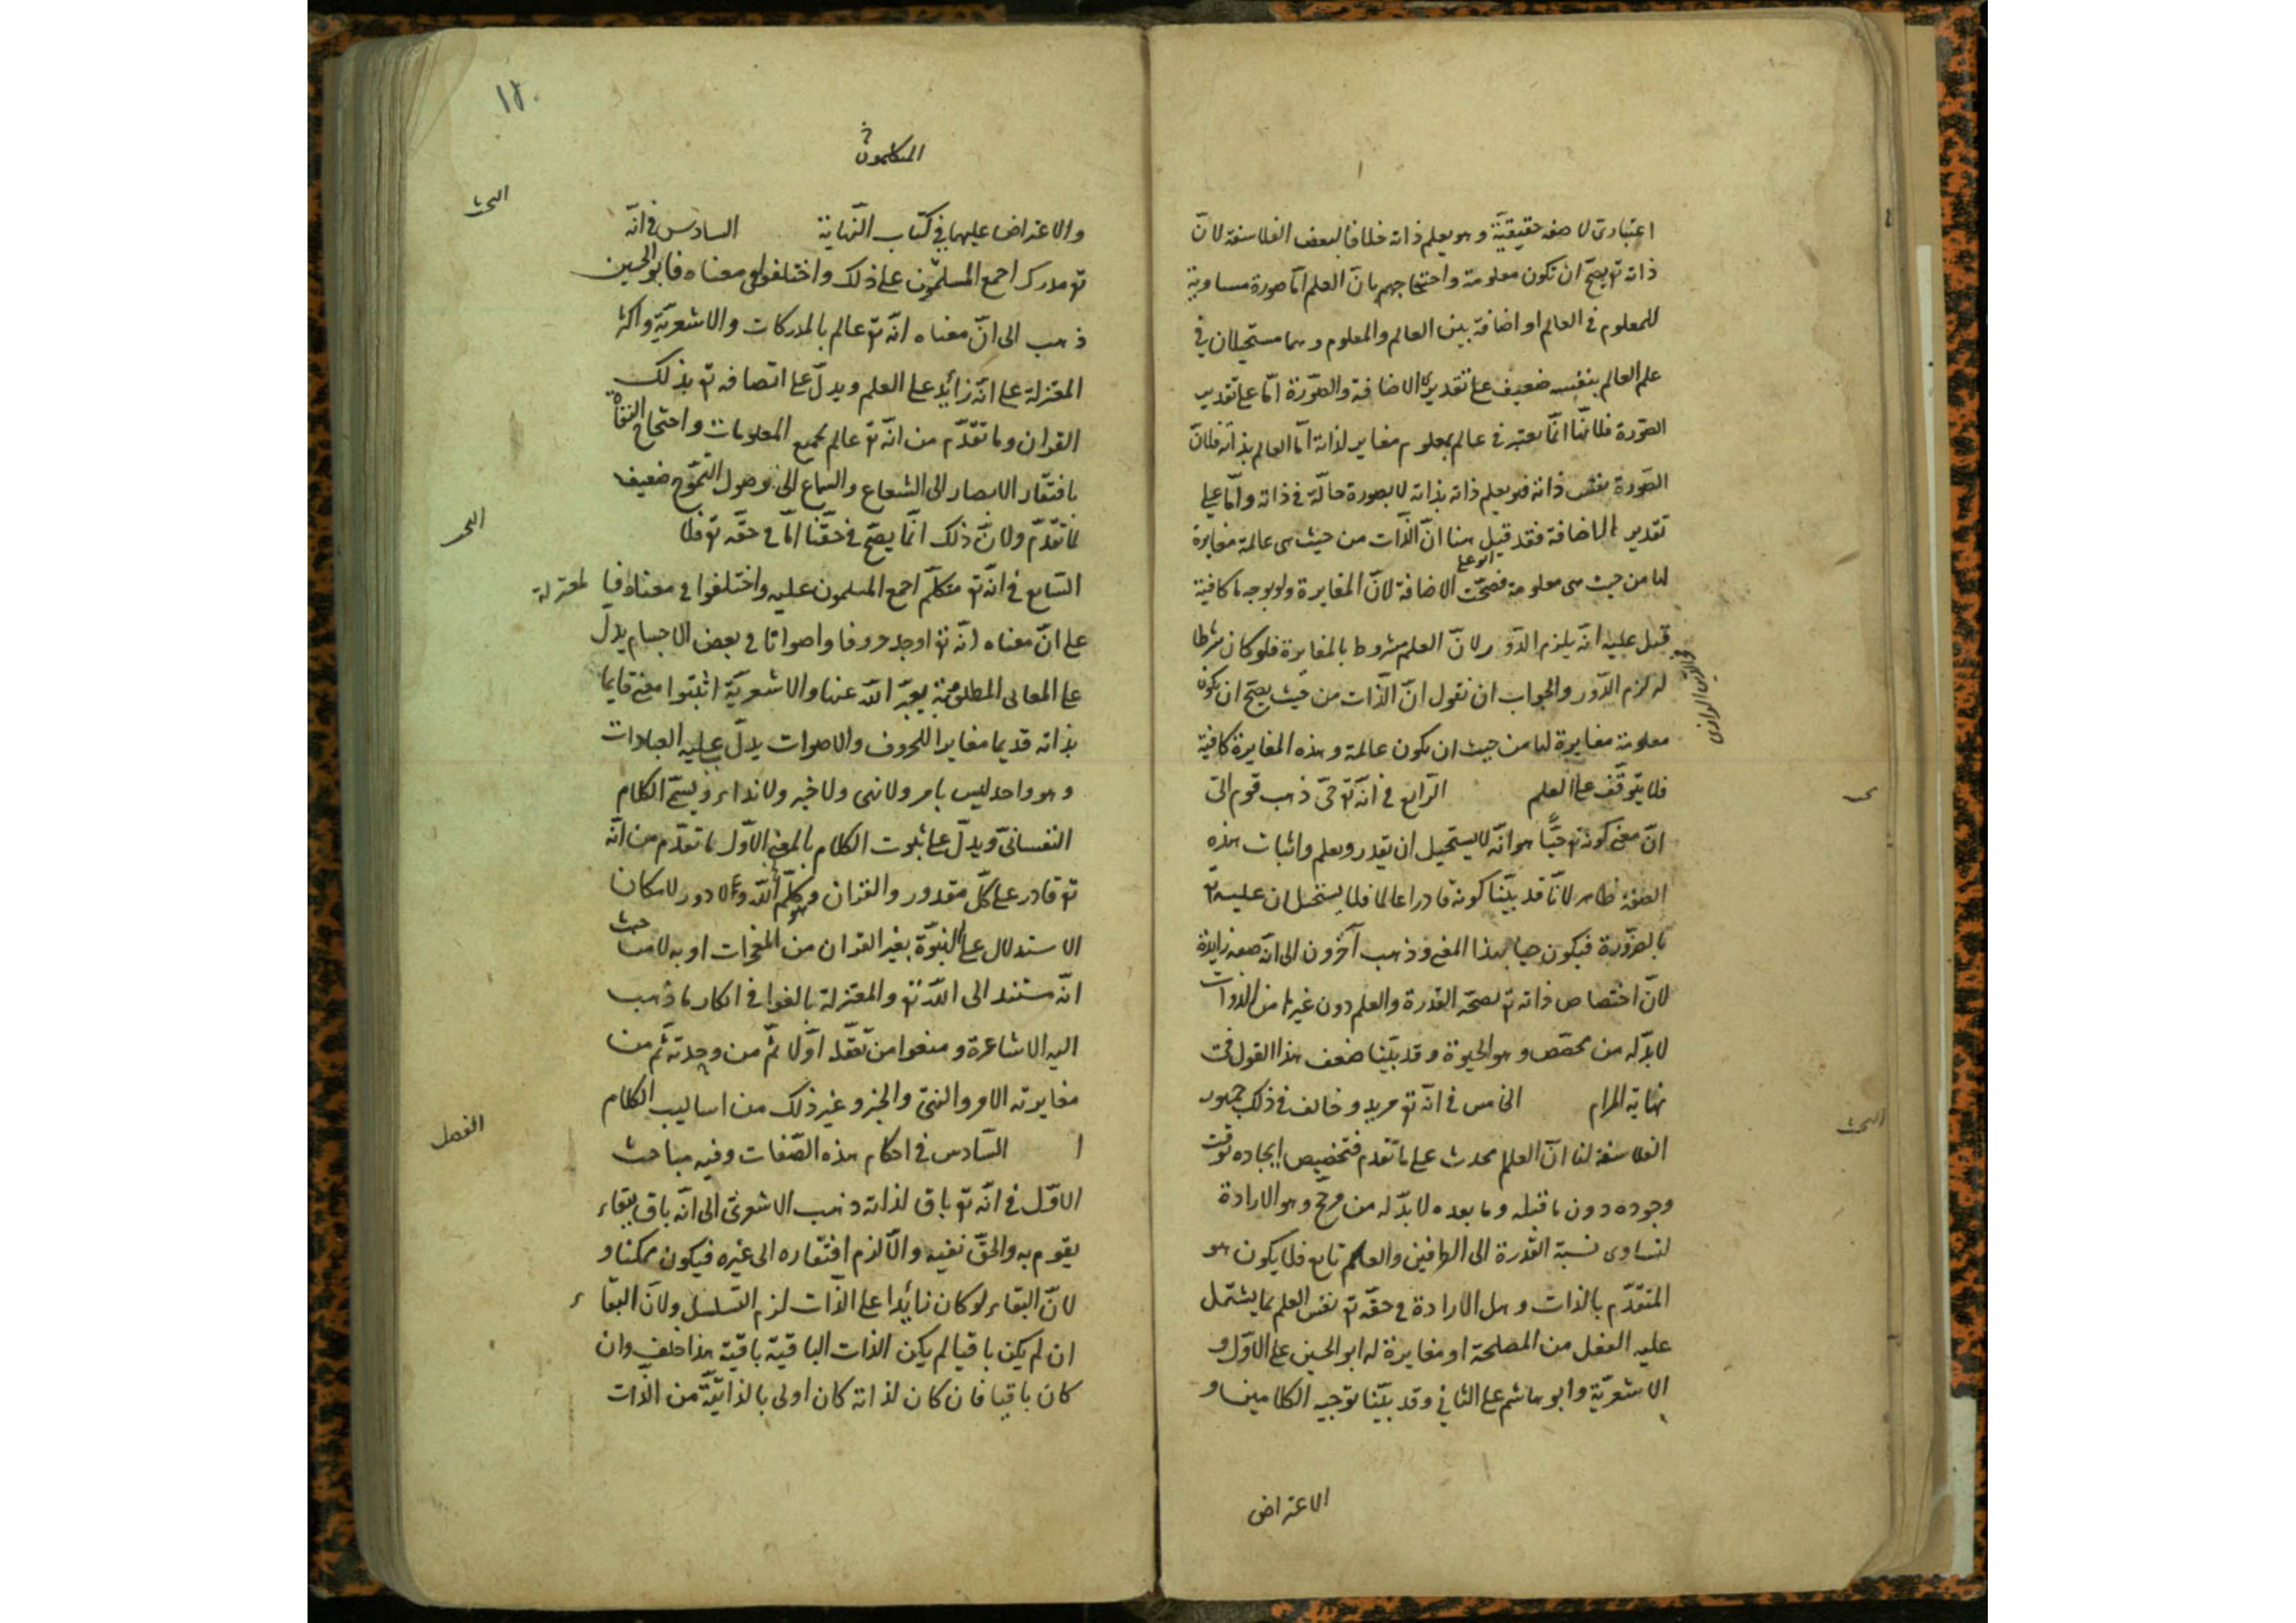 اعتبارى لا صفه حقيقيّة وهو يعلم ذاته خلافا لبعض الفلاسفة لانّ
ذاته تع يصحّ ان تكون معلومة واحتجاجهم بانّ العلم امّا صورة مساوية
للمعلوم في العالم او اضافة بين العالم والمعلوم وهما مستحيلان في
علم العالم بنفسه ضعيف على تقديرى الاضافة والصّورة امّا على تقدير
الصّورة فلانّها انّما يعتبر في عالم بمعلوم مغاير لذاته امّا العالم بذاته فلانّ
الصّورة نفس ذاته فهو يعلم ذاته بذاته لا بصورة حالّة في ذاته وامّا على
تقدير الاضافة فقد قيل هنا انّ الذّات من حيث هى عالمة مغايرة
ابو على
لها من حيث هى معلومة فصحّت الاضافة لانّ المغايرة ولو بوجه ما كافية
قيل عليه انّه يلزم الدّور لانّ العلم مشروط بالمغايرة فلو كان شرطا
فخر الدين الرازى
له لزم الدّور والجواب ان نقول انّ الذّات من حيث يصحّ ان يكون
معلومة مغايرة لها من حيث ان يكون عالمة وهذه المغايرة كافية
فلا يتوقّف على العلم الرّابع في انّه تع حىّ ذهب قوم الى
انّ معنى كونه تع حيّا هو انّه لا يستحيل ان يقدر ويعلم واثبات هذه
الصفة ظاهر لانّا قد بيّنا كونه قادرا عالما فلا يستحيلان عليه تع
بالضّرورة فيكون حيا بهذا المعنى وذهب آخرون الى انّه صفة زايدة
لانّ اختصاص ذاته تع بصحّة القدرة والعلم دون غيرها من الذوات
لا بدّ له من مخصّص وهو الحيوة وقد بيّنا ضعف هذا القول في
نهاية المرام الخامس في انّه تع مريد وخالف في ذلك جمهور
البحث
الفلاسفة لنا انّ العالم محدث على ما تقدم فتخصيص ايجاده بوقت
وجوده دون ما قبله وما بعده لا بدّ له من مرجّح وهو الارادة
لتساوى نسبة القدرة الى الطرفين والعلم تابع فلا يكون هو
المتقدّم بالذات وهل الارادة في حقّه تع نفس العلم بما يشتمل
عليه الفعل من المصلحة او مغايرة له ابو الحسين على الاوّل و
الاشعريّة وابو هاشم على الثاني وقد بيّنا توجيه الكلامين و
الاعتراض
١٢٠
المتكلمون
البحث
والاعتراض عليها في كتاب النّهاية السادس في انّه
تع مدرك اجمع المسلمون على ذلك واختلفوا في معناه فابو الحسين
ذهب الى انّ معناه انّه تع عالم بالمدركات والاشعريّة واكثر
المعتزلة على انّه زائد على العلم ويدلّ على اتصافه تع بذلك
القران وما تقدّم من انّه تع عالم بجميع المعلومات واحتجاج النفاة
بافتقار الابصار الى الشعاع والسماع الى وصول التموّج ضعيف
لما تقدّم ولانّ ذلك انّما يصحّ في حقّنا امّا في حقّه تع فلا
البحث
السّابع في انّه تع متكلّم اجمع المسلمون عليه واختلفوا في معناه فالمعتزلة
على انّ معناه انّه تع اوجد حروفا واصواتا في بعض الاجسام يدلّ
على المعانى المطلوبة يعبّر اللّه عنها والاشعريّة اثبتوا معنى قايما
بذاته قديما مغايرا للحروف والاصوات يدلّ عليه العبارات
وهو واحد ليس بامر ولا نهى ولا خبر ولا نداء ويسمّى الكلام
النفسانىّ ويدلّ على ثبوت الكلام بالمعنى الاوّل ما تقدّم من انّه
تع قادر على كلّ مقدور والقران وكلّم اللّه ولا دور لامكان
الاستدلال على النبوّة بغير القران من المعجزات او به لا من حيث
انّه مستند الى اللّه تع والمعتزلة بالغوا في انكار ما ذهب
اليه الاشاعرة ومنعوا من تعقّله اوّلا ثمّ من وحدته ثمّ من
مغايرته الامر والنهى والخبر وغير ذلك من اساليب الكلام
الفصل
السّادس في احكام هذه الصّفات وفيه مباحث ا
الاوّل في انّه تع باق لذاته ذهب الاشعرىّ الى انّه باق ببقاء
يقوم به والحقّ نفيه والّا لزم افتقاره الى غيره فيكون ممكنا و
لانّ البقاء لو كان زائدا على الذّات لزم التسلسل ولانّ البقاء
ان لم يكن باقيا لم يكن الذات الباقية باقية هذا خلف وان
كان باقيا فان كان لذاته كان اولى بالذاتيّة من الذّات